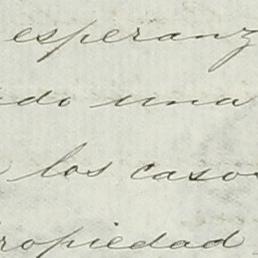 esperanz
do una
los casos
ropiedad